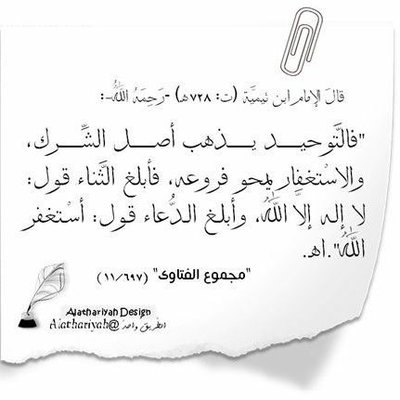 قال الإمام ابن تيمية (ت: ٧٢٨هـ) -رَحِمَهُ اللَّهُ-:
"فالتَّوحيــد يــذهب أصــل الشِّــرك،
والاسْتغفار يمحو فروعه، فأبلغ الثَّناء قول:
لا إله إلا اللَّهُ، وأبلغ الدُّعاء قول: أسْتغفر
اللَّهَ".اهـ.
"مجموع الفتاوى" (١١/٦٩٧)
Alathariyah Design
الطريق واحد @Alathariyah